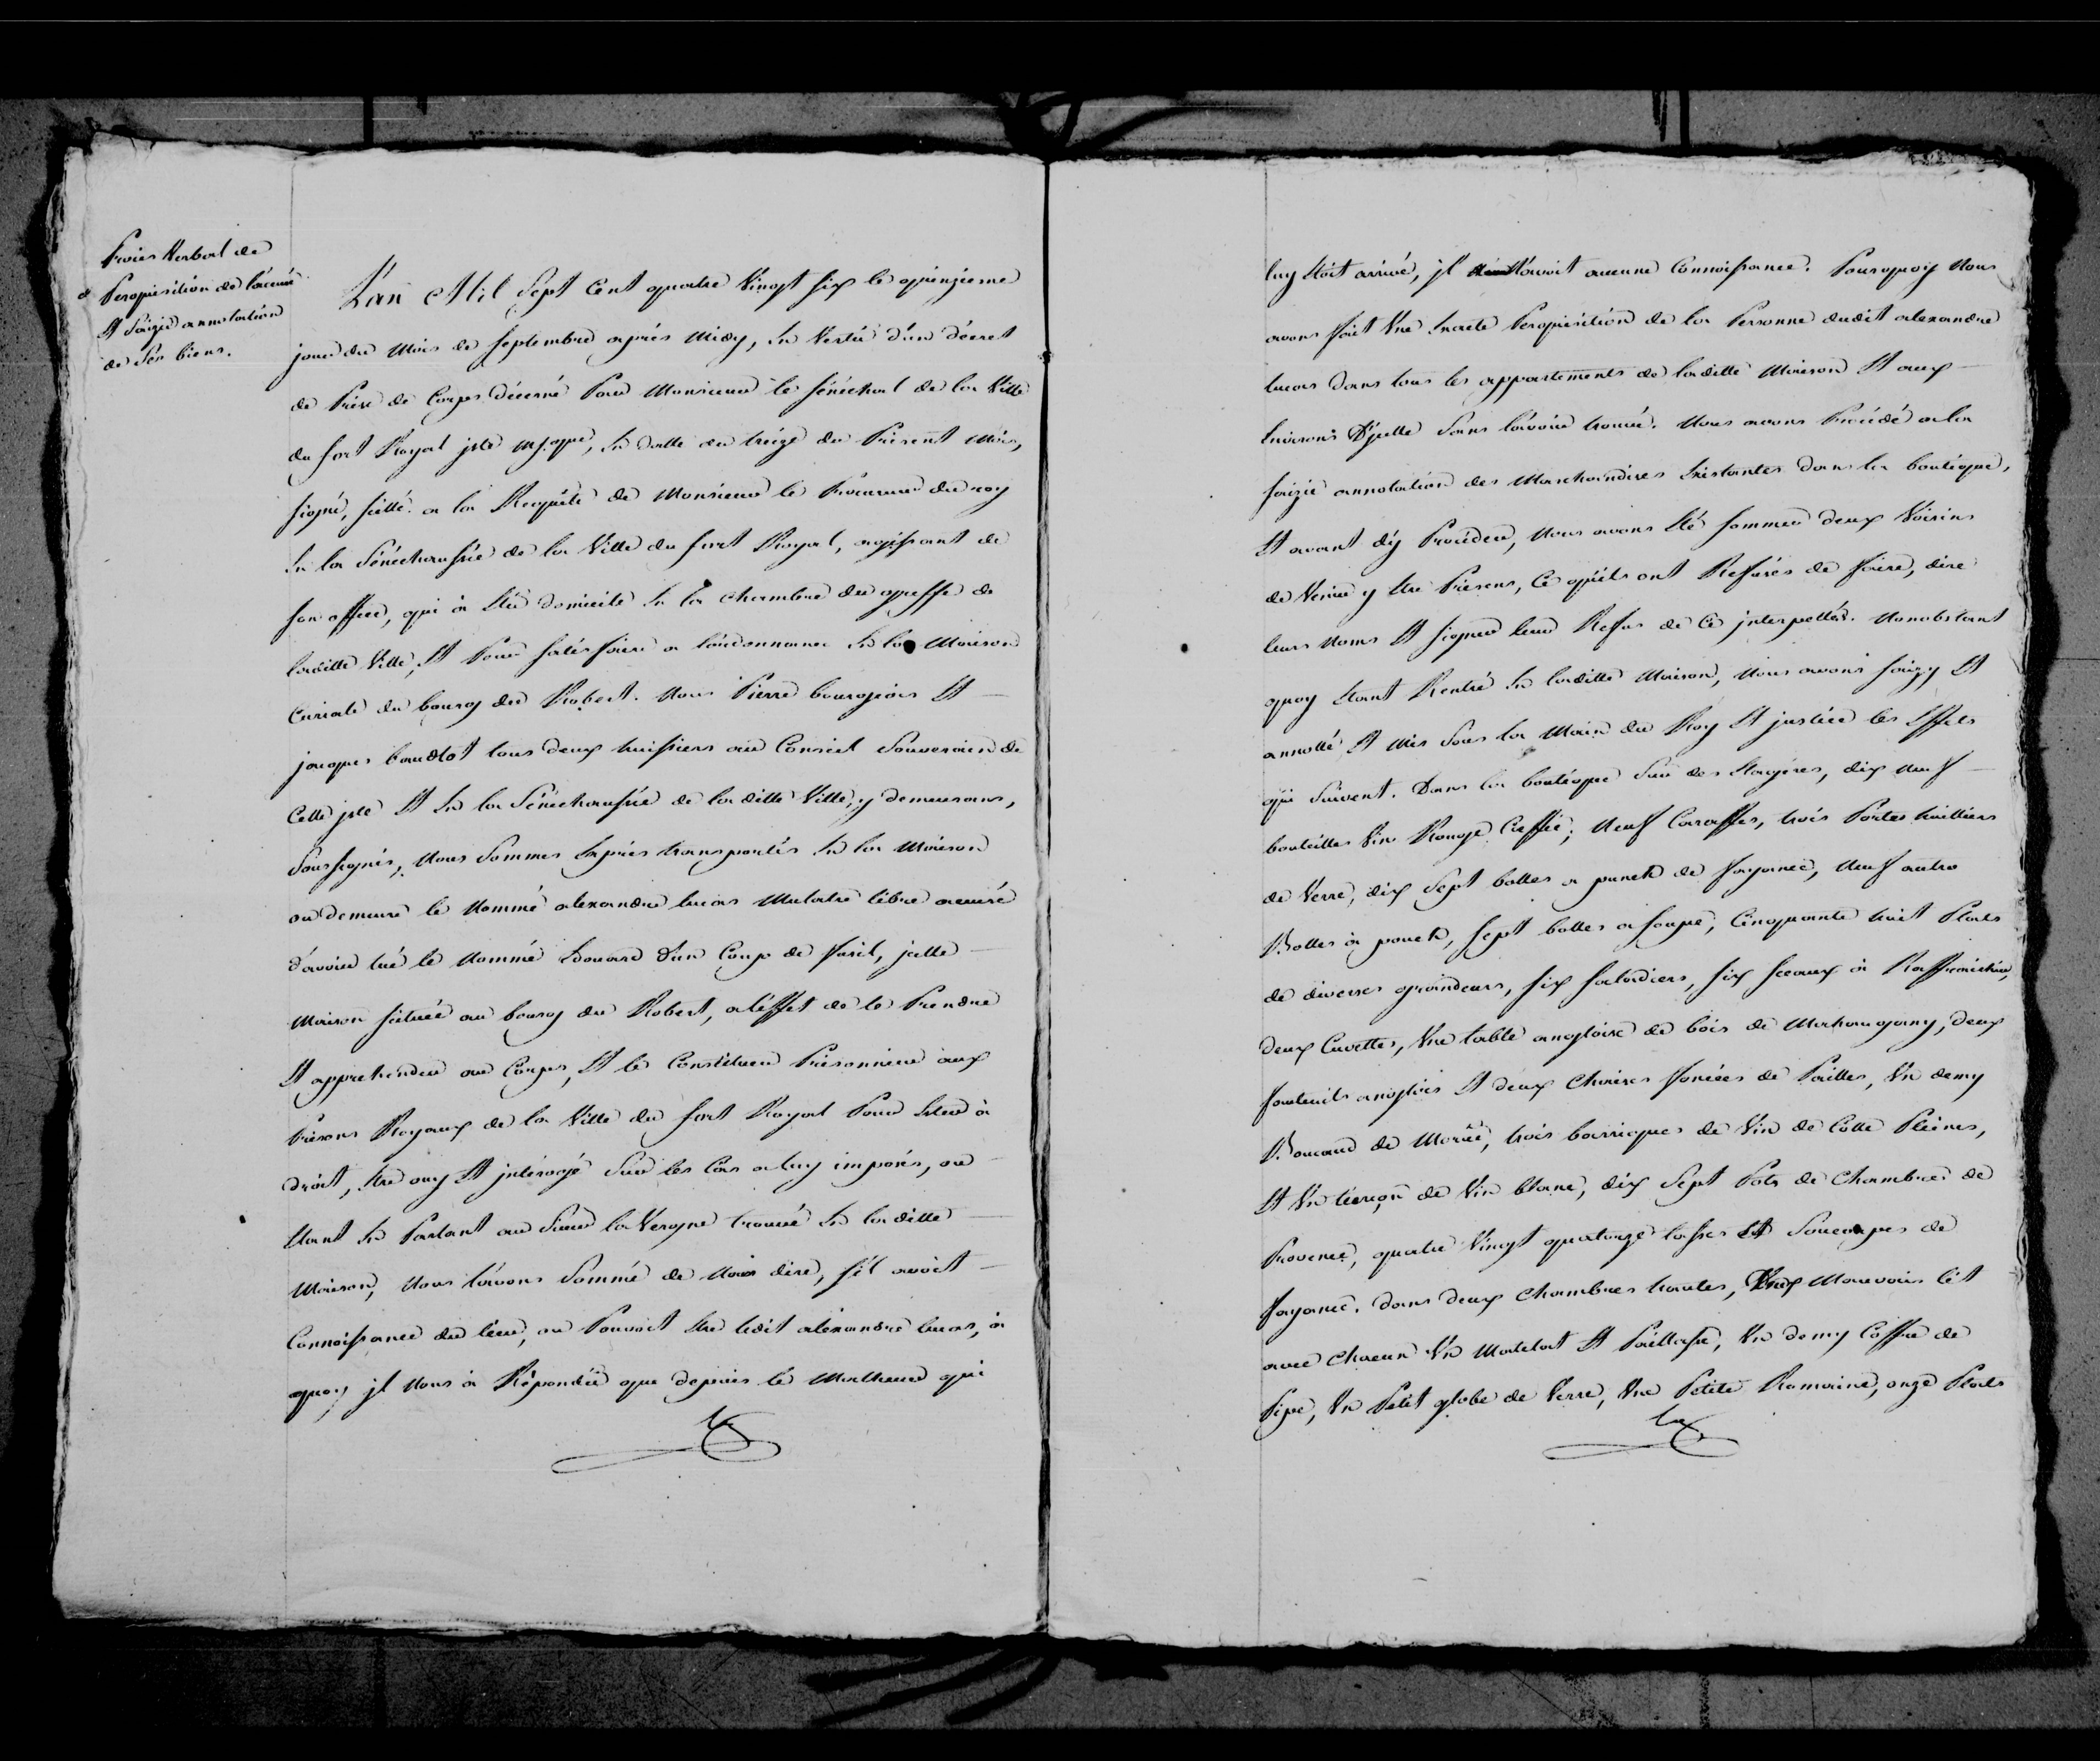 Procès Verbal de
Perquisition de l'accusé
Et Saizie annotation
de Ses biens.
L'an Mil Sept Cent quatre Vingt six le quinzieme
jour du Mois de Septembre après Midy, En Vertu d'un décret
de Prise de Corps décerné Par Monsieur le Sénéchal de la Ville
du fort Royal isle en datte du treize du Présent Mois,
signé, scellé. a la Requête de Monsieur le Procureur du roy
En la Sénéchaussée de la Ville du fort Royal, agissant de
son office, qui à Elû domicile En la chambre du greffe de
laditte Ville, Et Pour satisfaire a l'ordonnance En la Maison
Curiale du bourg du Robert. Nous Pierre bourgeois Et
jacques baudot tous deux huissiers au Conseil Souverain de
Cette isle Et En la Sénéchaussée de la ditte Ville, y demeurans,
Soussignés, Nous Sommes Exprès transportés En la Maison
ou demeure le Nommé alexandre lucas Mulatre libre accusé
d'avoir tué le Nommé Edouard d'un Coup de fusil, jcelle
Maison située au bourg du Robert, a l'effet de le Prendre
Et apprehender au Corps, Et le Constituer Prisonnier aux
Prisons Royaux de la Ville du fort Royal Pour Ester à
droit, Etre ouy Et jntérogé Sur les Cas a luy imposés, ou
Etant En Parlant au Sieur la Vergne trouvé En la ditte
Maison, Nous l'avons Sommé de Nous dire, s'il avoit
Connoissance du lieu, ou Pouvoit Etre ledit alexandre lucas, à
quoy jl Nous à Répondû que depuis le Malheur qui
luy Etoit arrivé, jl N'avoit aucune Connoissance. Pourquoy Nous
avons fait Une Exacte Perquisition de la Personne dudit alexandre
lucas dans tous les appartements de laditte Maison Et aux
Environs D'jcelle Sans l'avoir trouvé. Nous avons Procédé a la
saizie annotation des Marchandises Existantes dans la boutique,
Et avant d'y Procéder, Nous avons Eté sommer deux Voisins
de Venir y Etre Présens, Ce qu'ils ont Refusés de faire, dire
leurs Noms Et signer leur Refus de Ce jnterpellés. Nonobstant
quoy Etant Rentré En laditte Maison, Nous avons saizy Et
annotté Et Mis Sous la Main du Roy Et justice les Effets
qui Suivent. Dans la boutique Sur des Etagères, dix Neuf
bouteilles Vin Rouge Neuf Caraffes, trois Portes huilliers
de Verre, dix Sept bolles a punch de fayance, Neuf autre
Bolles à ponch, sept bolles a soupe, Cinquante huit Plats
de diverses grandeurs, six saladiers, six sceaux à Raffraichir,
deux Cuvettes, Une table angloise de bois de Mahaugany, deux
fauteuils anglois Et deux chaises foncées de Pailles, Un demy
Boucaud de Morüe, trois barriques de Vin de Cotte Pleines,
Et Un tierçon de Vin blanc, dix Sept Pots de Chambres de
Provence, quatre Vingt quatorze tasses Et Soucoupes de
fayance. dans deux chambres hautes, Deux Mauvais lit
avec chacun Un Matelat Et Paillasse, Un demy Coffre de
Pipe, Un Petit globe de Verre, Une Petite Romaine, onze Plats